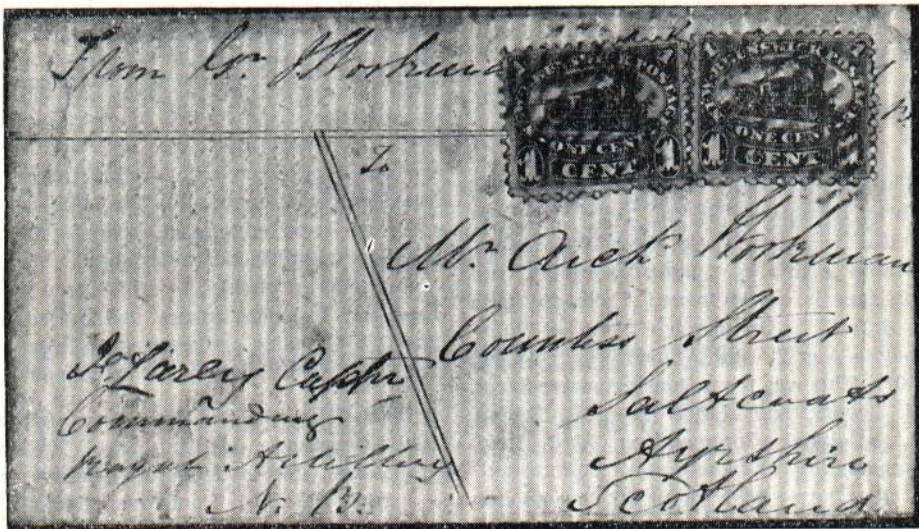 From Gr. J Workman
NEW BRUNSWICK POSTAGE
1 1
ONE CENT
1 CENT 1
NEW BRUNSWICK POSTAGE
1 1
ONE CENT
1 CENT 1
To
Mr. Arch Workman
Countess Street
Saltcoats
Ayrshire
Scotland
Captn
Commanding
Royal Artillery
N. B.